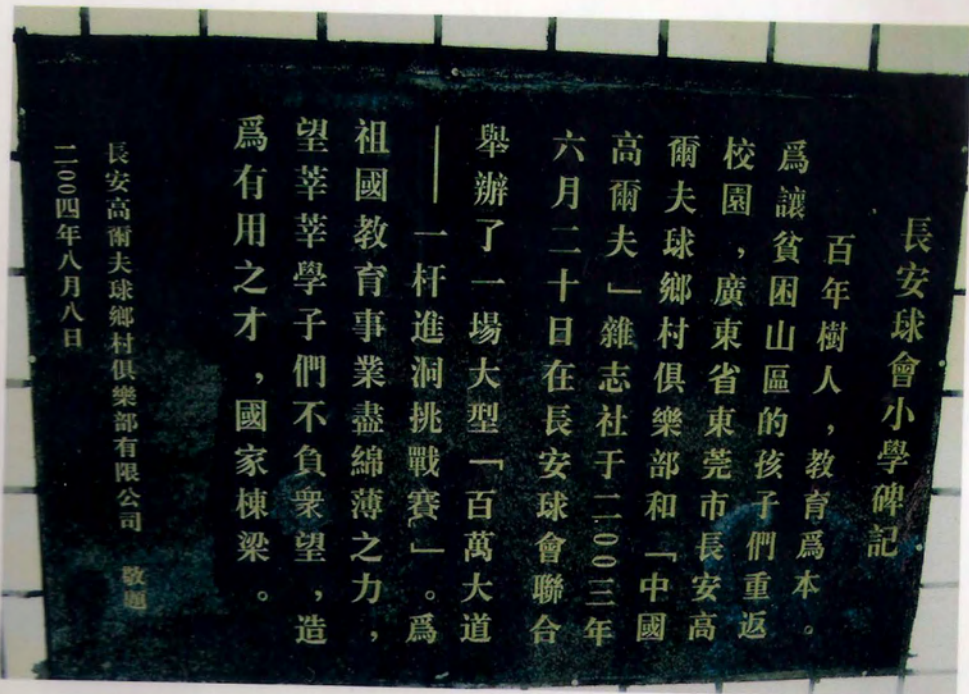 長安球會小學碑記
百年樹人，教育爲本。
爲讓貧困山區的孩子們重返
校園，廣東省東莞市長安高
爾夫球鄉村俱樂部和「中國
高爾夫」雜志社于二00三年
六月二十日在長安球會聯合
舉辦了一場大型「百萬大道
——一杆進洞挑戰賽」。爲
祖國教育事業盡綿薄之力，
望莘莘學子們不負衆望，造
爲有用之才，國家棟梁。
長安高爾夫球鄉村俱樂部有限公司 敬題
二00四年八月八日